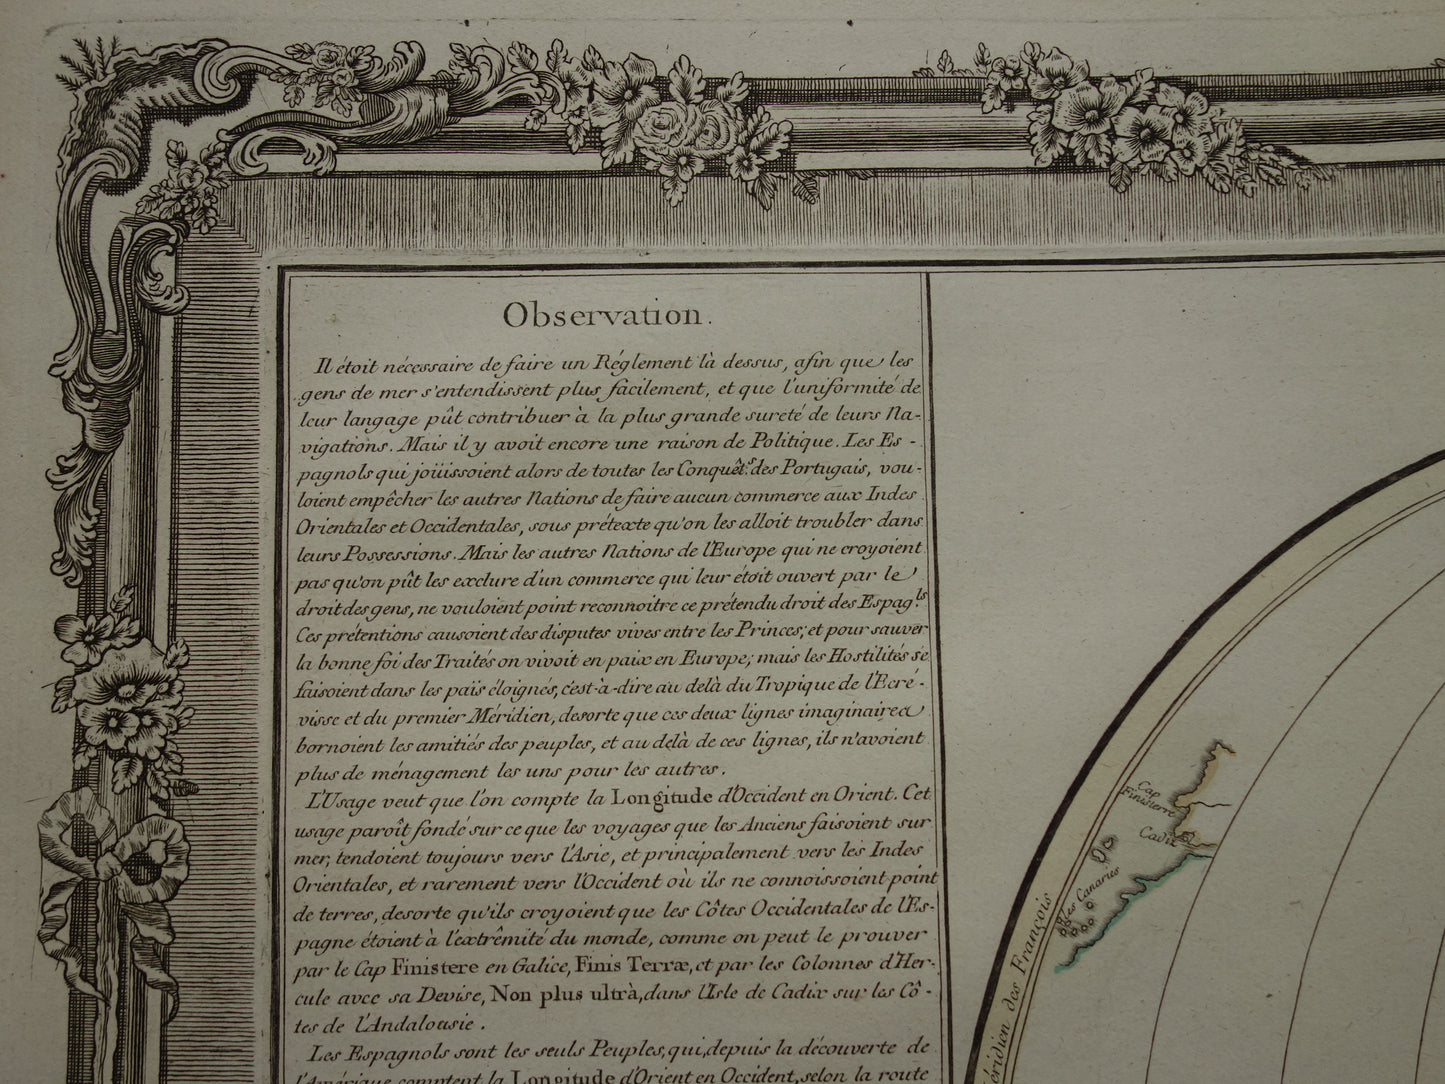 Observation.
Il étoit nécessaire de faire un Réglement là dessus, afin que les
gens de mer s'entendissent plus facilement, et que l'uniformité de
leur langage pût contribuer à la plus grande sureté de leurs Na-
vigations. Mais il y avoit encore une raison de Politique. Les Es-
pagnols qui joüissoient alors de toutes les Conquêt.s des Portugais, vou-
loient empêcher les autres Nations de faire aucun commerce aux Indes
Orientales et Occidentales, sous prétexte qu'on les alloit troubler dans
leurs Possessions. Mais les autres Nations de l'Europe qui ne croyoient
pas qu'on pût les exclure d'un commerce qui leur étoit ouvert par le
droit des gens, ne vouloient point reconnoitre ce prétendu droit des Espag.ls
Ces prétentions causoient des disputes vives entre les Princes; et pour sauver
la bonne foi des Traités on vivoit en paix en Europe; mais les Hostilités se
faisoient dans les païs éloignés, c'est-à-dire au delà du Tropique de l'Ecré-
visse et du premier Méridien, desorte que ces deux lignes imaginaires
bornoient les amitiés des peuples, et au delà de ces lignes, ils n'avoient
plus de ménagement les uns pour les autres.
L'Usage veut que l'on compte la Longitude d'Occident en Orient. Cet
usage paroît fondé sur ce que les voyages que les Anciens faisoient sur
mer, tendoient toujours vers l'Asie, et principalement vers les Indes
Orientales, et rarement vers l'Occident où ils ne connoissoient point
de terres, desorte qu'ils croyoient que les Côtes Occidentales de l'Es-
pagne étoient à l'extrêmité du monde, comme on peut le prouver
par le Cap Finistere en Galice, Finis Terræ, et par les Colonnes d'Her-
cule avec sa Devise, Non plus ultrà, dans l'Isle de Cadix sur les Cô-
tes de l'Andalousie.
Les Espagnols sont les seuls Peuples, qui, depuis la découverte de
l'Amérique comptent la Longitude d'Orient en Occident, selon la route
Cap
Finisterre
Cadix
Les Canaries
Méridien des François